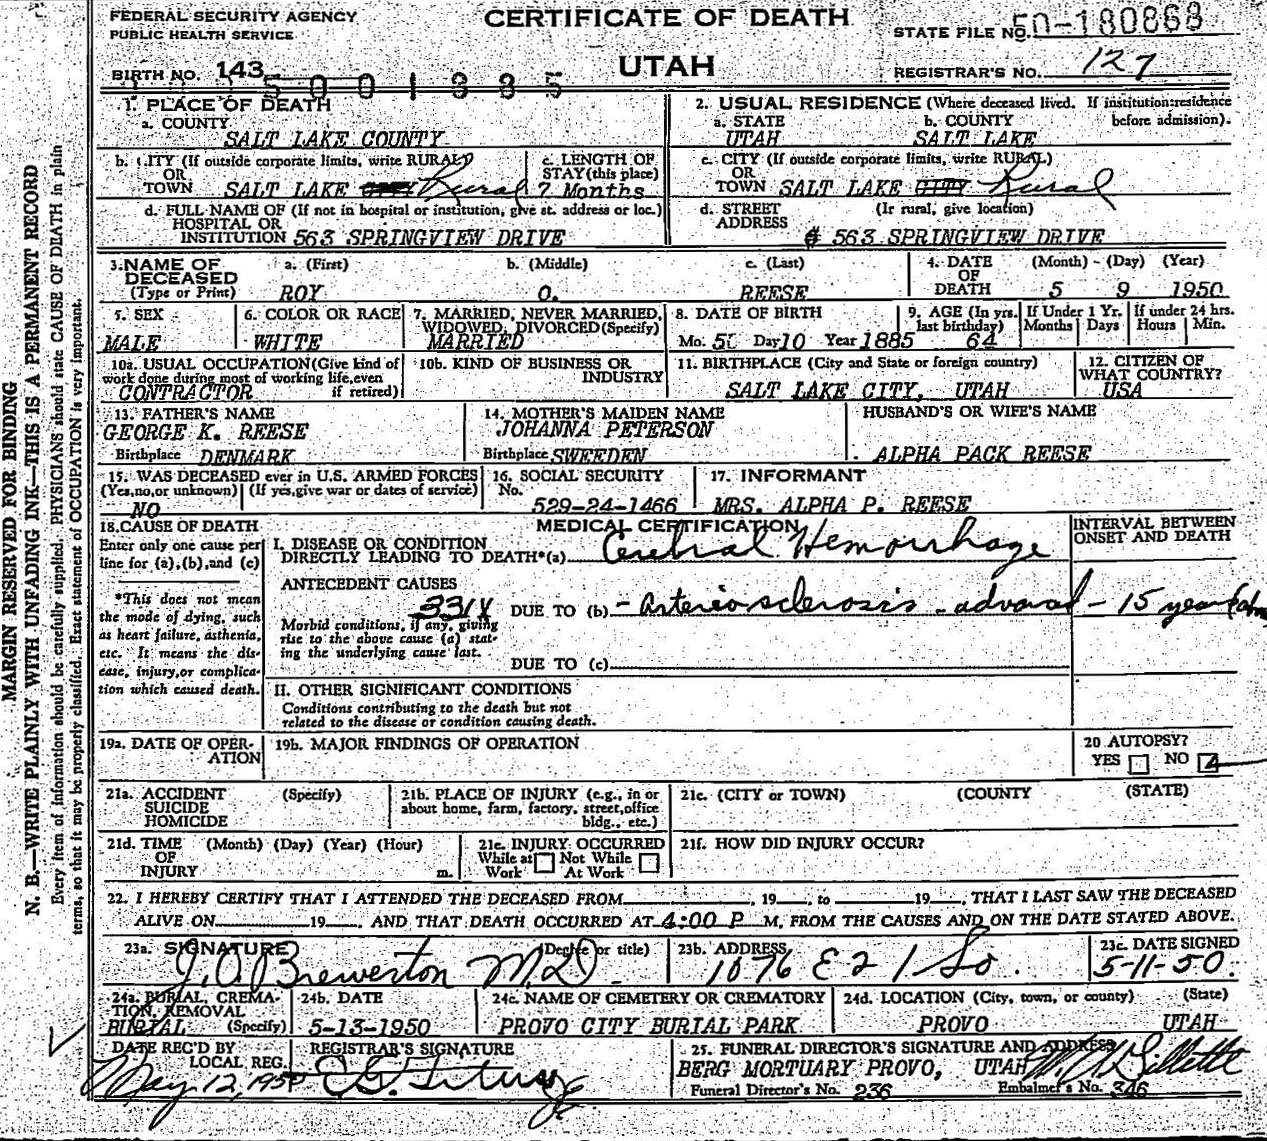 FEDERAL SECURITY AGENCY
PUBLIC HEALTH SERVICE
CERTIFICATE OF DEATH
UTAH
STATE FILE NO. 50-180868
REGISTRAR'S NO. 127
BIRTH NO. 143
5001885
1. PLACE OF DEATH
a. COUNTY
SALT LAKE COUNTY
2. USUAL RESIDENCE (Where deceased lived. If institution:residence before admission).
a. STATE
UTAH
b. COUNTY
SALT LAKE
b. CITY (If outside corporate limits, write RURAL)
OR
TOWN SALT LAKE CITY Rural
c. LENGTH OF
STAY (this place)
7 Months
c. CITY (If outside corporate limits, write RURAL)
OR
TOWN SALT LAKE CITY Rural
d. FULL NAME OF (If not in hospital or institution, give st. address or loc.)
HOSPITAL OR
INSTITUTION 563 SPRINGVIEW DRIVE
d. STREET (If rural, give location)
ADDRESS
563 SPRINGVIEW DRIVE
3. NAME OF
DECEASED
(Type or Print)
a. (First)
ROY
b. (Middle)
O.
c. (Last)
REESE
4. DATE
OF
DEATH
(Month) - (Day) (Year)
5 9 1950
5. SEX
MALE
6. COLOR OR RACE
WHITE
7. MARRIED, NEVER MARRIED,
WIDOWED, DIVORCED (Specify)
MARRIED
8. DATE OF BIRTH
Mo. Day 10 Year 1885
9. AGE (In yrs.
last birthday)
64
If Under 1 Yr.
Months Days
If under 24 hrs.
Hours Min.
10a. USUAL OCCUPATION (Give kind of
work done during most of working life, even
if retired)
CONTRACTOR
10b. KIND OF BUSINESS OR
INDUSTRY
11. BIRTHPLACE (City and State or foreign country)
SALT LAKE CITY, UTAH
12. CITIZEN OF
WHAT COUNTRY?
USA
13. FATHER'S NAME
GEORGE K. REESE
Birthplace DENMARK
14. MOTHER'S MAIDEN NAME
JOHANNA PETERSON
Birthplace SWEEDEN
HUSBAND'S OR WIFE'S NAME
ALPHA PACK REESE
15. WAS DECEASED ever in U.S. ARMED FORCES
(Yes, no, or unknown) (If yes, give war or dates of service)
NO
16. SOCIAL SECURITY
No.
529-24-1466
17. INFORMANT
MRS. ALPHA P. REESE
18. CAUSE OF DEATH
Enter only one cause per
line for (a), (b), and (c)
*This does not mean
the mode of dying, such
as heart failure, asthenia,
etc. It means the dis-
ease, injury, or complica-
tion which caused death.
MEDICAL CERTIFICATION
I. DISEASE OR CONDITION
DIRECTLY LEADING TO DEATH*(a) Cerebral Hemorrhage
INTERVAL BETWEEN
ONSET AND DEATH
ANTECEDENT CAUSES
331X DUE TO (b) - Arteriosclerosis - advanced - 15 years
Morbid conditions, if any, giving
rise to the above cause (a) stat-
ing the underlying cause last.
DUE TO (c)
II. OTHER SIGNIFICANT CONDITIONS
Conditions contributing to the death but not
related to the disease or condition causing death.
19a. DATE OF OPER-
ATION
19b. MAJOR FINDINGS OF OPERATION
20 AUTOPSY?
YES NO
21a. ACCIDENT (Specify)
SUICIDE
HOMICIDE
21b. PLACE OF INJURY (e.g., in or
about home, farm, factory, street, office
bldg., etc.)
21c. (CITY or TOWN) (COUNTY) (STATE)
21d. TIME (Month) (Day) (Year) (Hour)
OF
INJURY m.
21e. INJURY OCCURRED
While at Not While
Work At Work
21f. HOW DID INJURY OCCUR?
22. I HEREBY CERTIFY THAT I ATTENDED THE DECEASED FROM , 19 , to 19 , THAT I LAST SAW THE DECEASED
ALIVE ON 19 , AND THAT DEATH OCCURRED AT 4:00 P M, FROM THE CAUSES AND ON THE DATE STATED ABOVE.
23a. SIGNATURE (Degree or title)
J. O. Brewerton M.D.
23b. ADDRESS
1076 E 21 So.
23c. DATE SIGNED
5-11-50
24a. BURIAL, CREMA-
TION, REMOVAL
BURIAL (Specify)
24b. DATE
5-13-1950
24c. NAME OF CEMETERY OR CREMATORY
PROVO CITY BURIAL PARK
24d. LOCATION (City, town, or county) (State)
PROVO UTAH
DATE REC'D BY
LOCAL REG.
May 12, 1950
REGISTRAR'S SIGNATURE
25. FUNERAL DIRECTOR'S SIGNATURE AND ADDRESS
BERG MORTUARY PROVO, UTAH Gillette
Funeral Director's No. 236 Embalmer's No. 346
MARGIN RESERVED FOR BINDING
N. B.—WRITE PLAINLY WITH UNFADING INK—THIS IS A PERMANENT RECORD
Every item of information should be carefully supplied. PHYSICIANS should state CAUSE OF DEATH in plain
terms, so that it may be properly classified. Exact statement of OCCUPATION is very important.